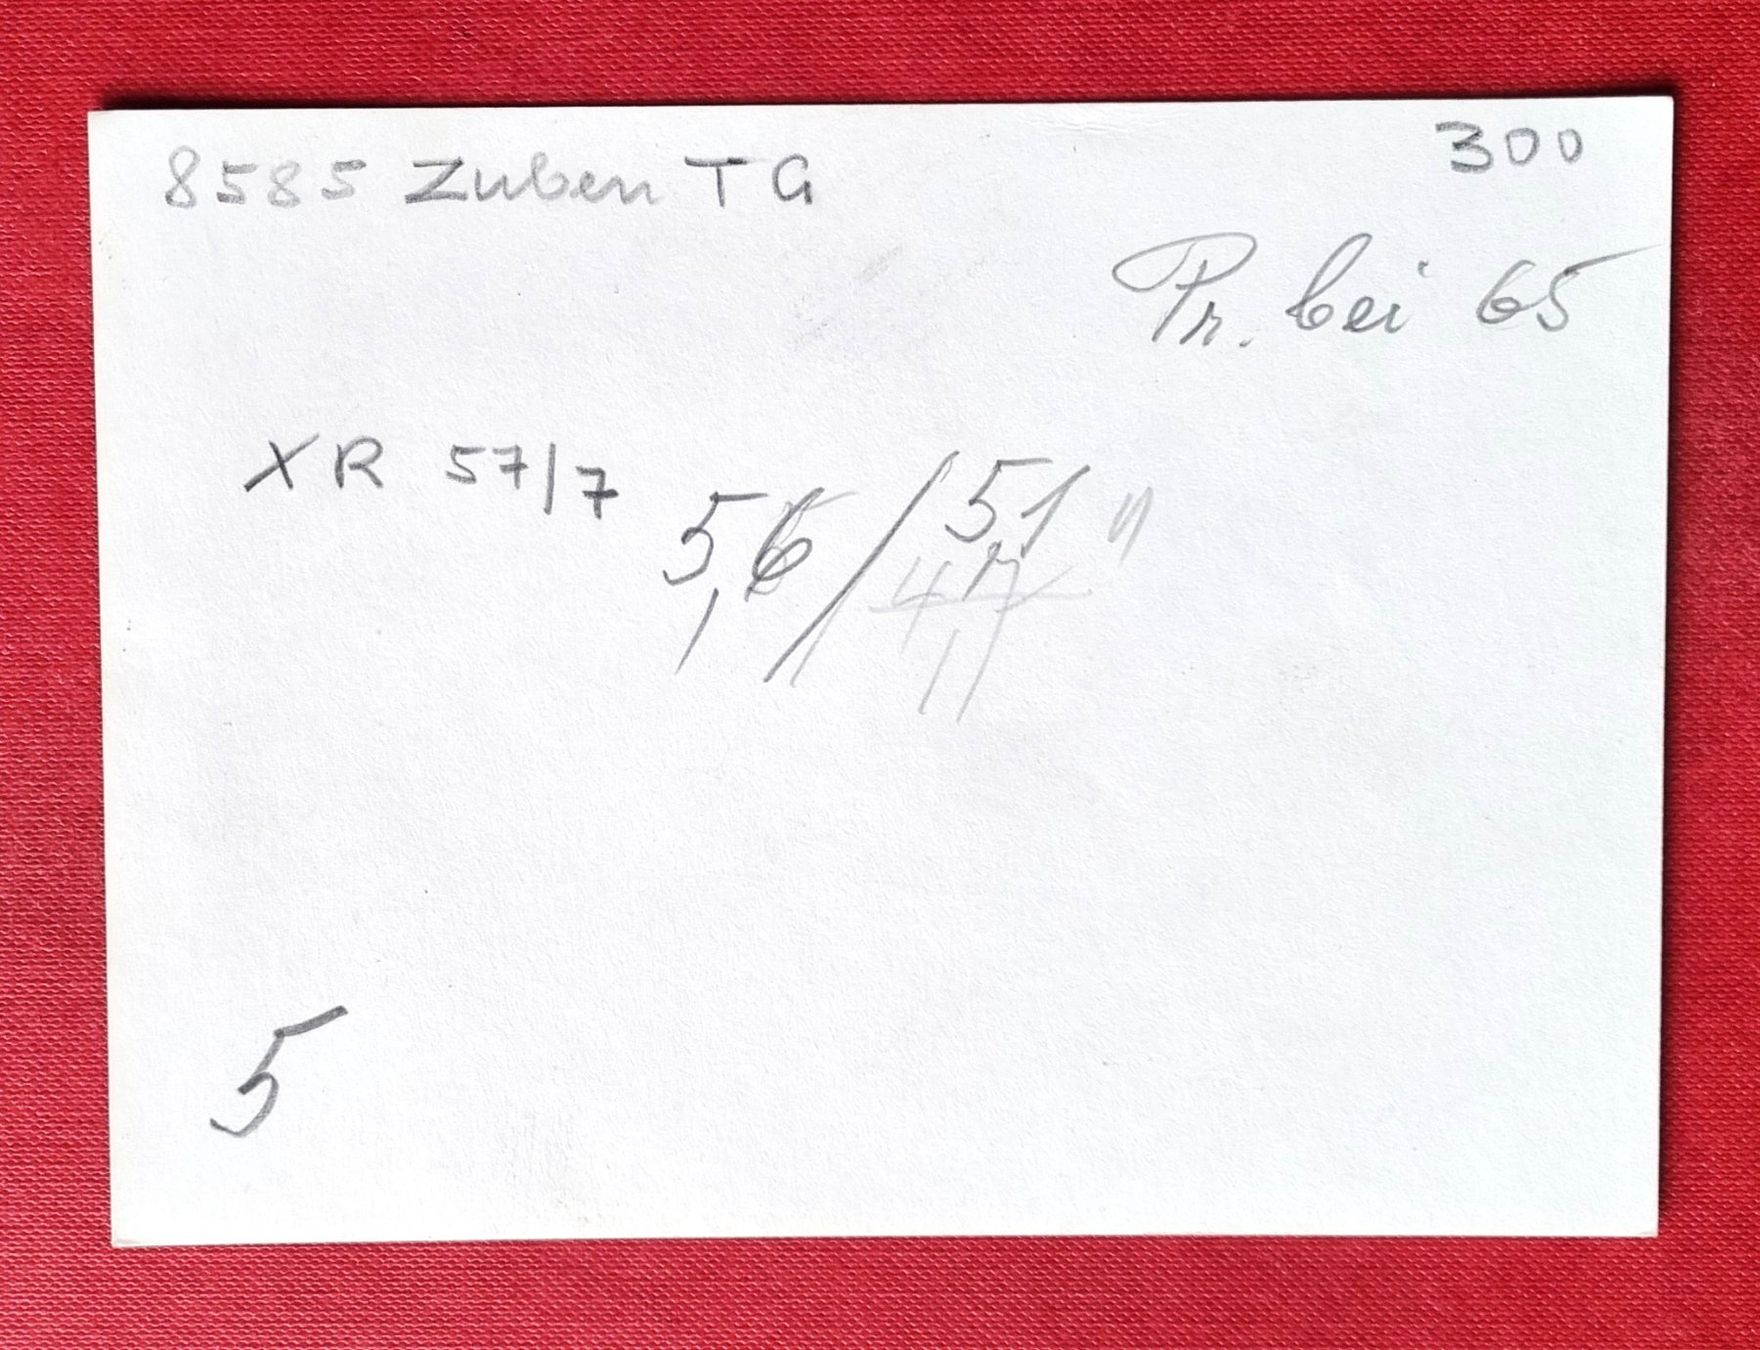 8585 Zuben TG
300
Pr. bei 65
XR 57/7
5,6 / 51
47
5